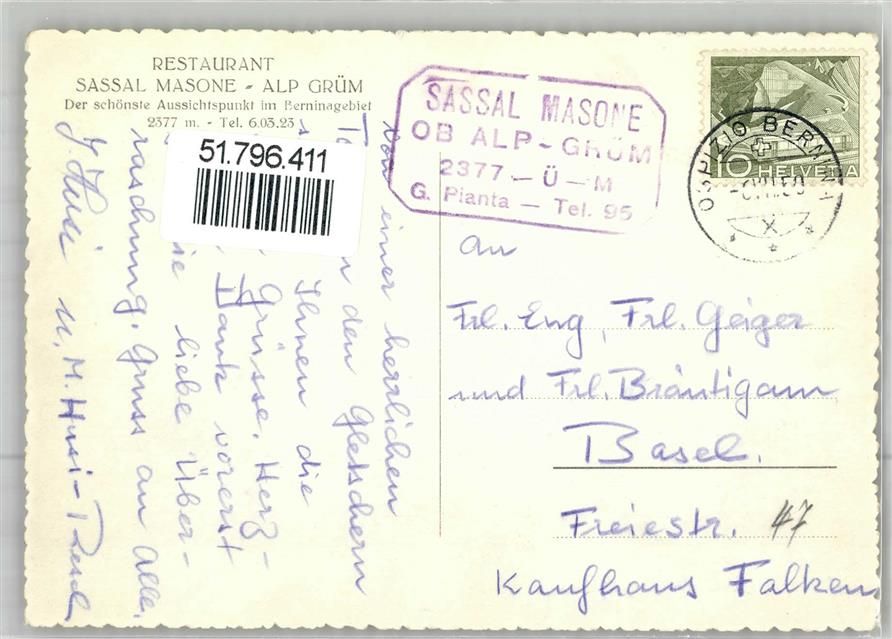 RESTAURANT
SASSAL MASONE - ALP GRÜM
Der schönste Aussichtspunkt im Berninagebiet
2377 m. - Tel. 6.03.23
51.796.411
SASSAL MASONE
OB ALP-GRÜM
2377 — Ü — M
G. Pianta — Tel. 95
10 HELVETIA
OSPIZIO BERNINA
Von einer herrlichen
den Gletschern
Ihnen die
Grüsse. Herz-
Dank vorerst
die liebe Über-
raschung. Gruss an Alle,
u. M. Husi-
An
Frl. Eng, Frl. Geiger
und Frl. Bräutigam
Basel.
Freiestr. 47
Kaufhaus Falken